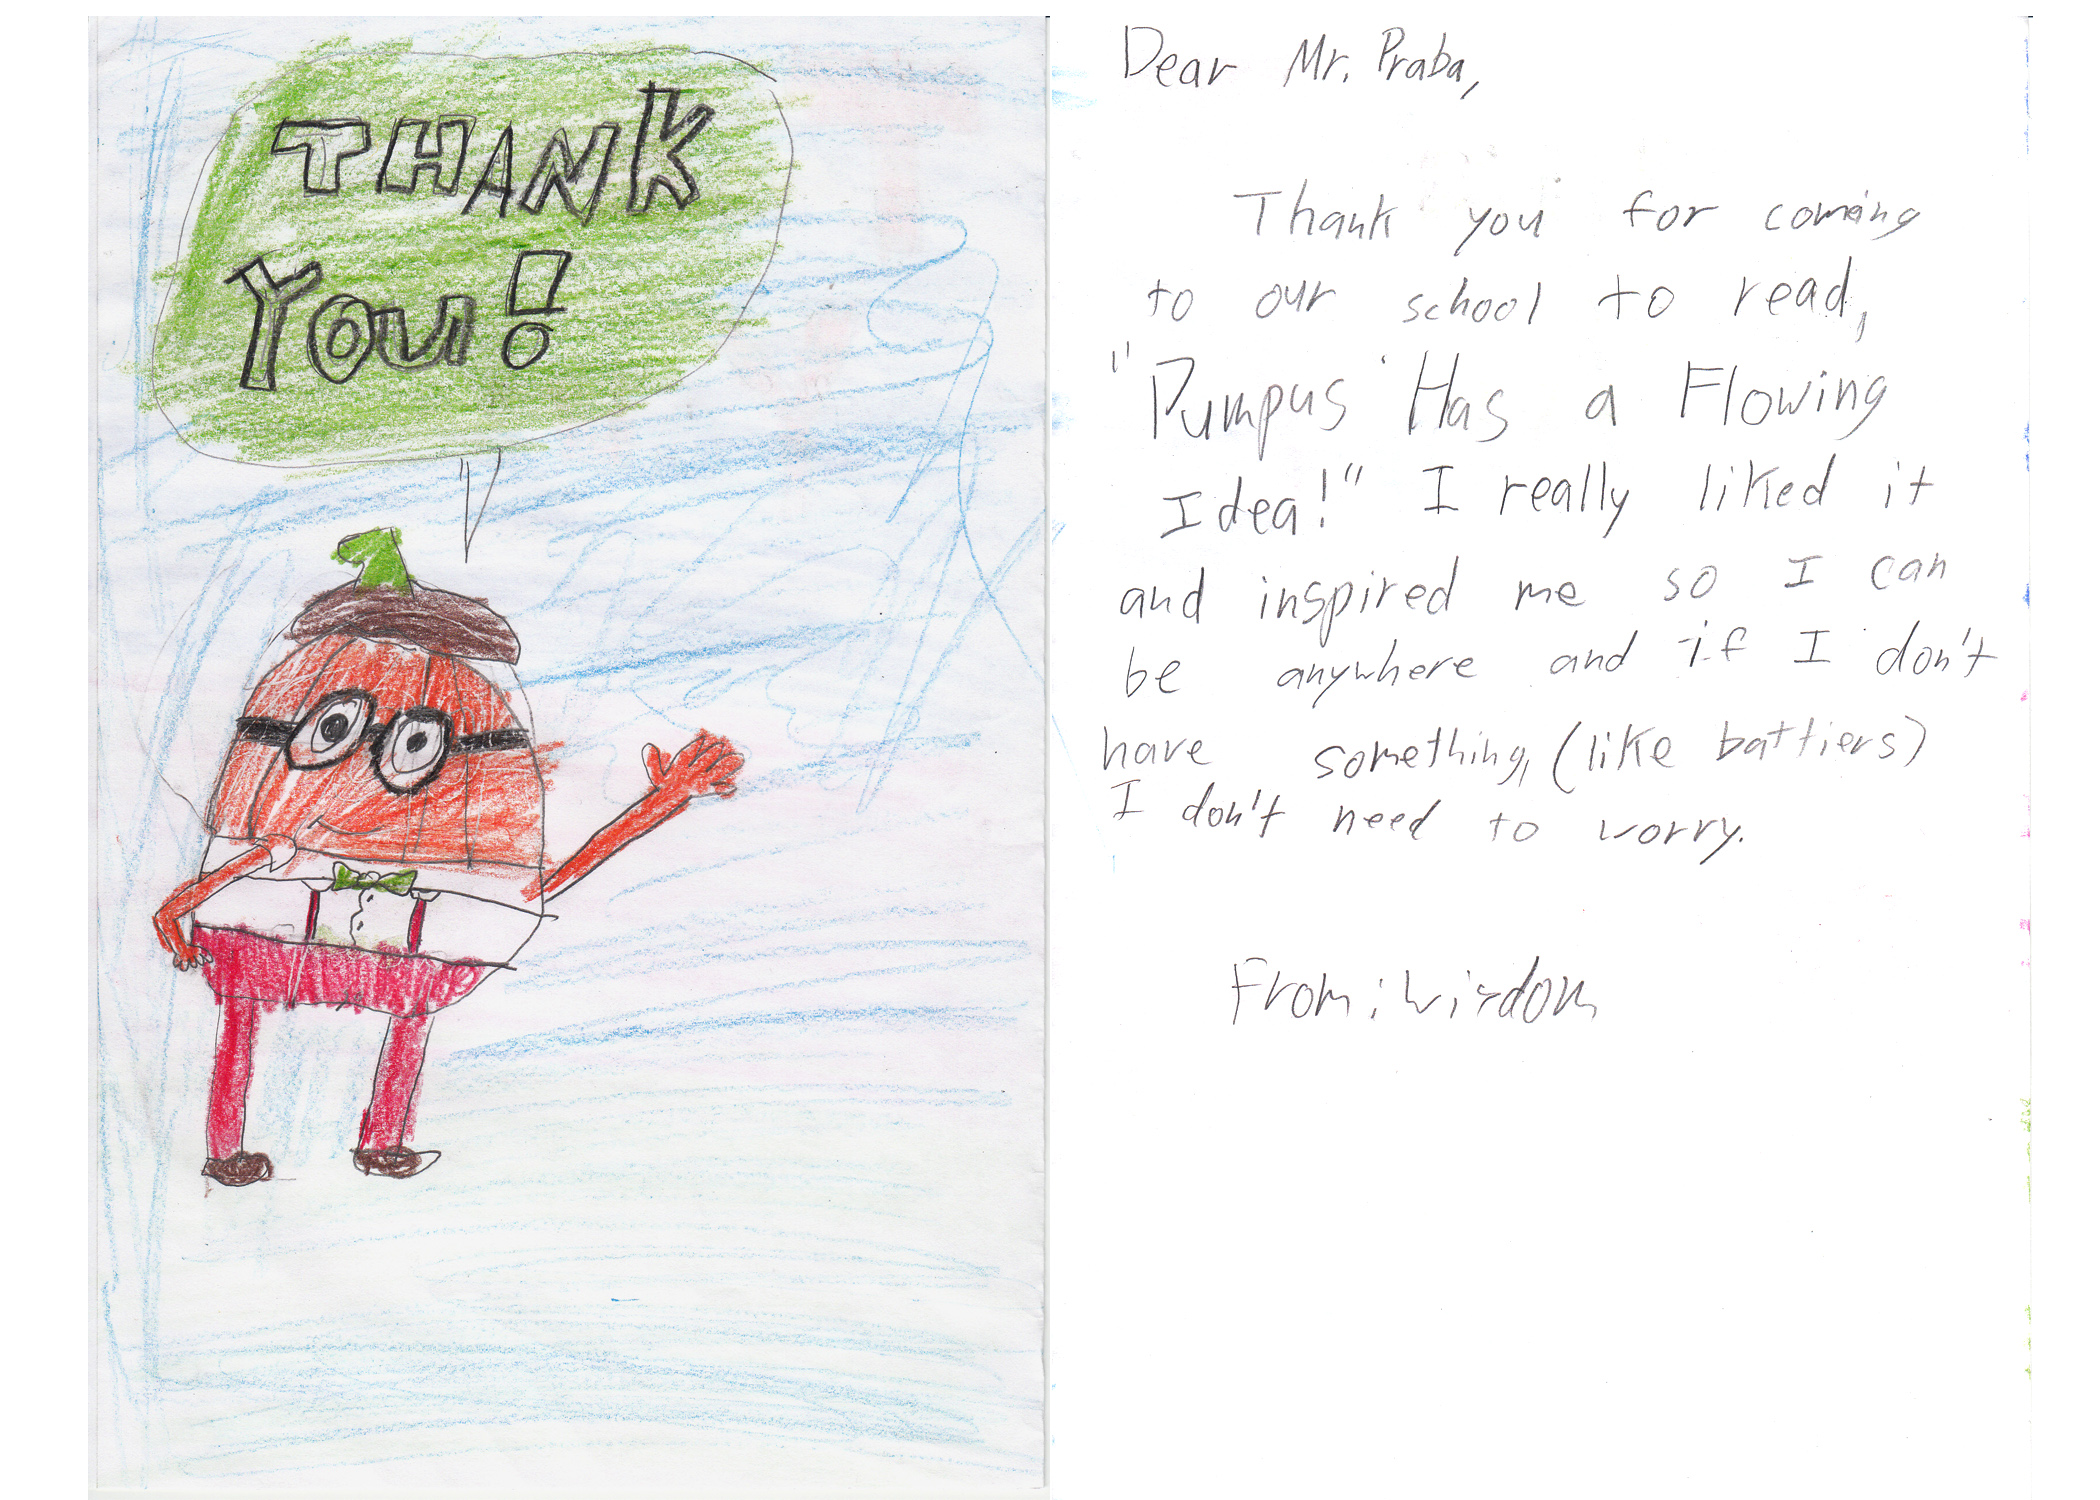 THANK
YOU!
Dear Mr. Praba,
Thank you for coming
to our school to read,
"Pumpus Has a Flowing
Idea!" I really liked it
and inspired me so I can
be anywhere and if I don't
have something, (like battiers)
I don't need to worry.
From: Wisdom